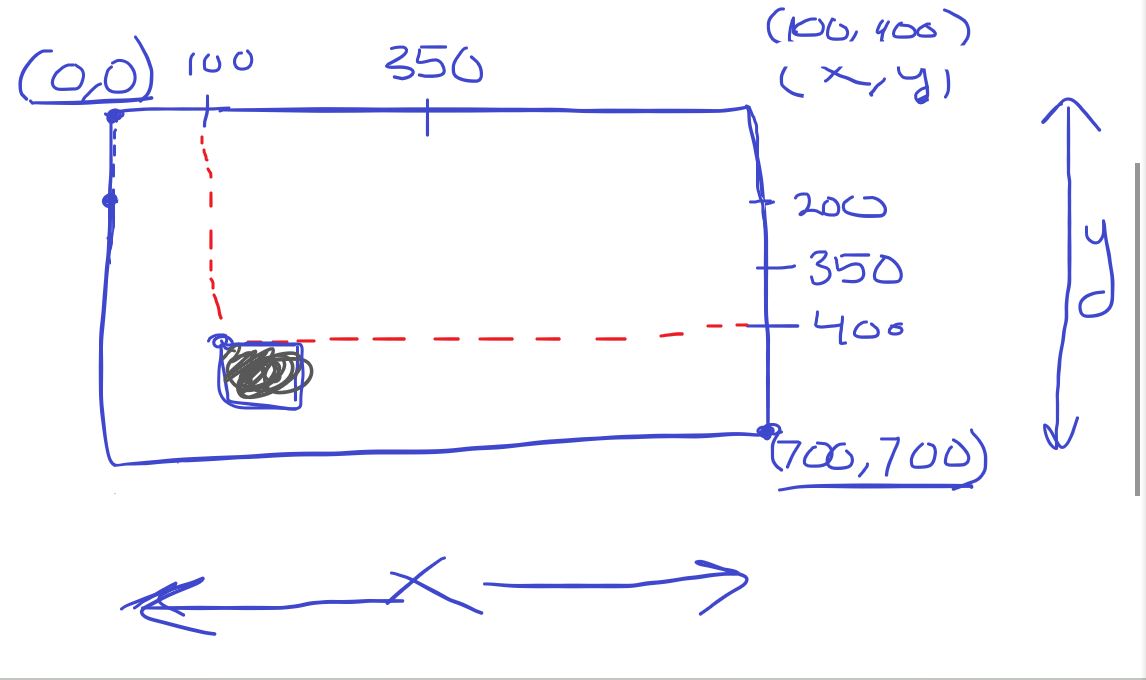 (0,0) 100 350 (100, 400)
(x, y)
200
350
400
y
(700, 700)
X